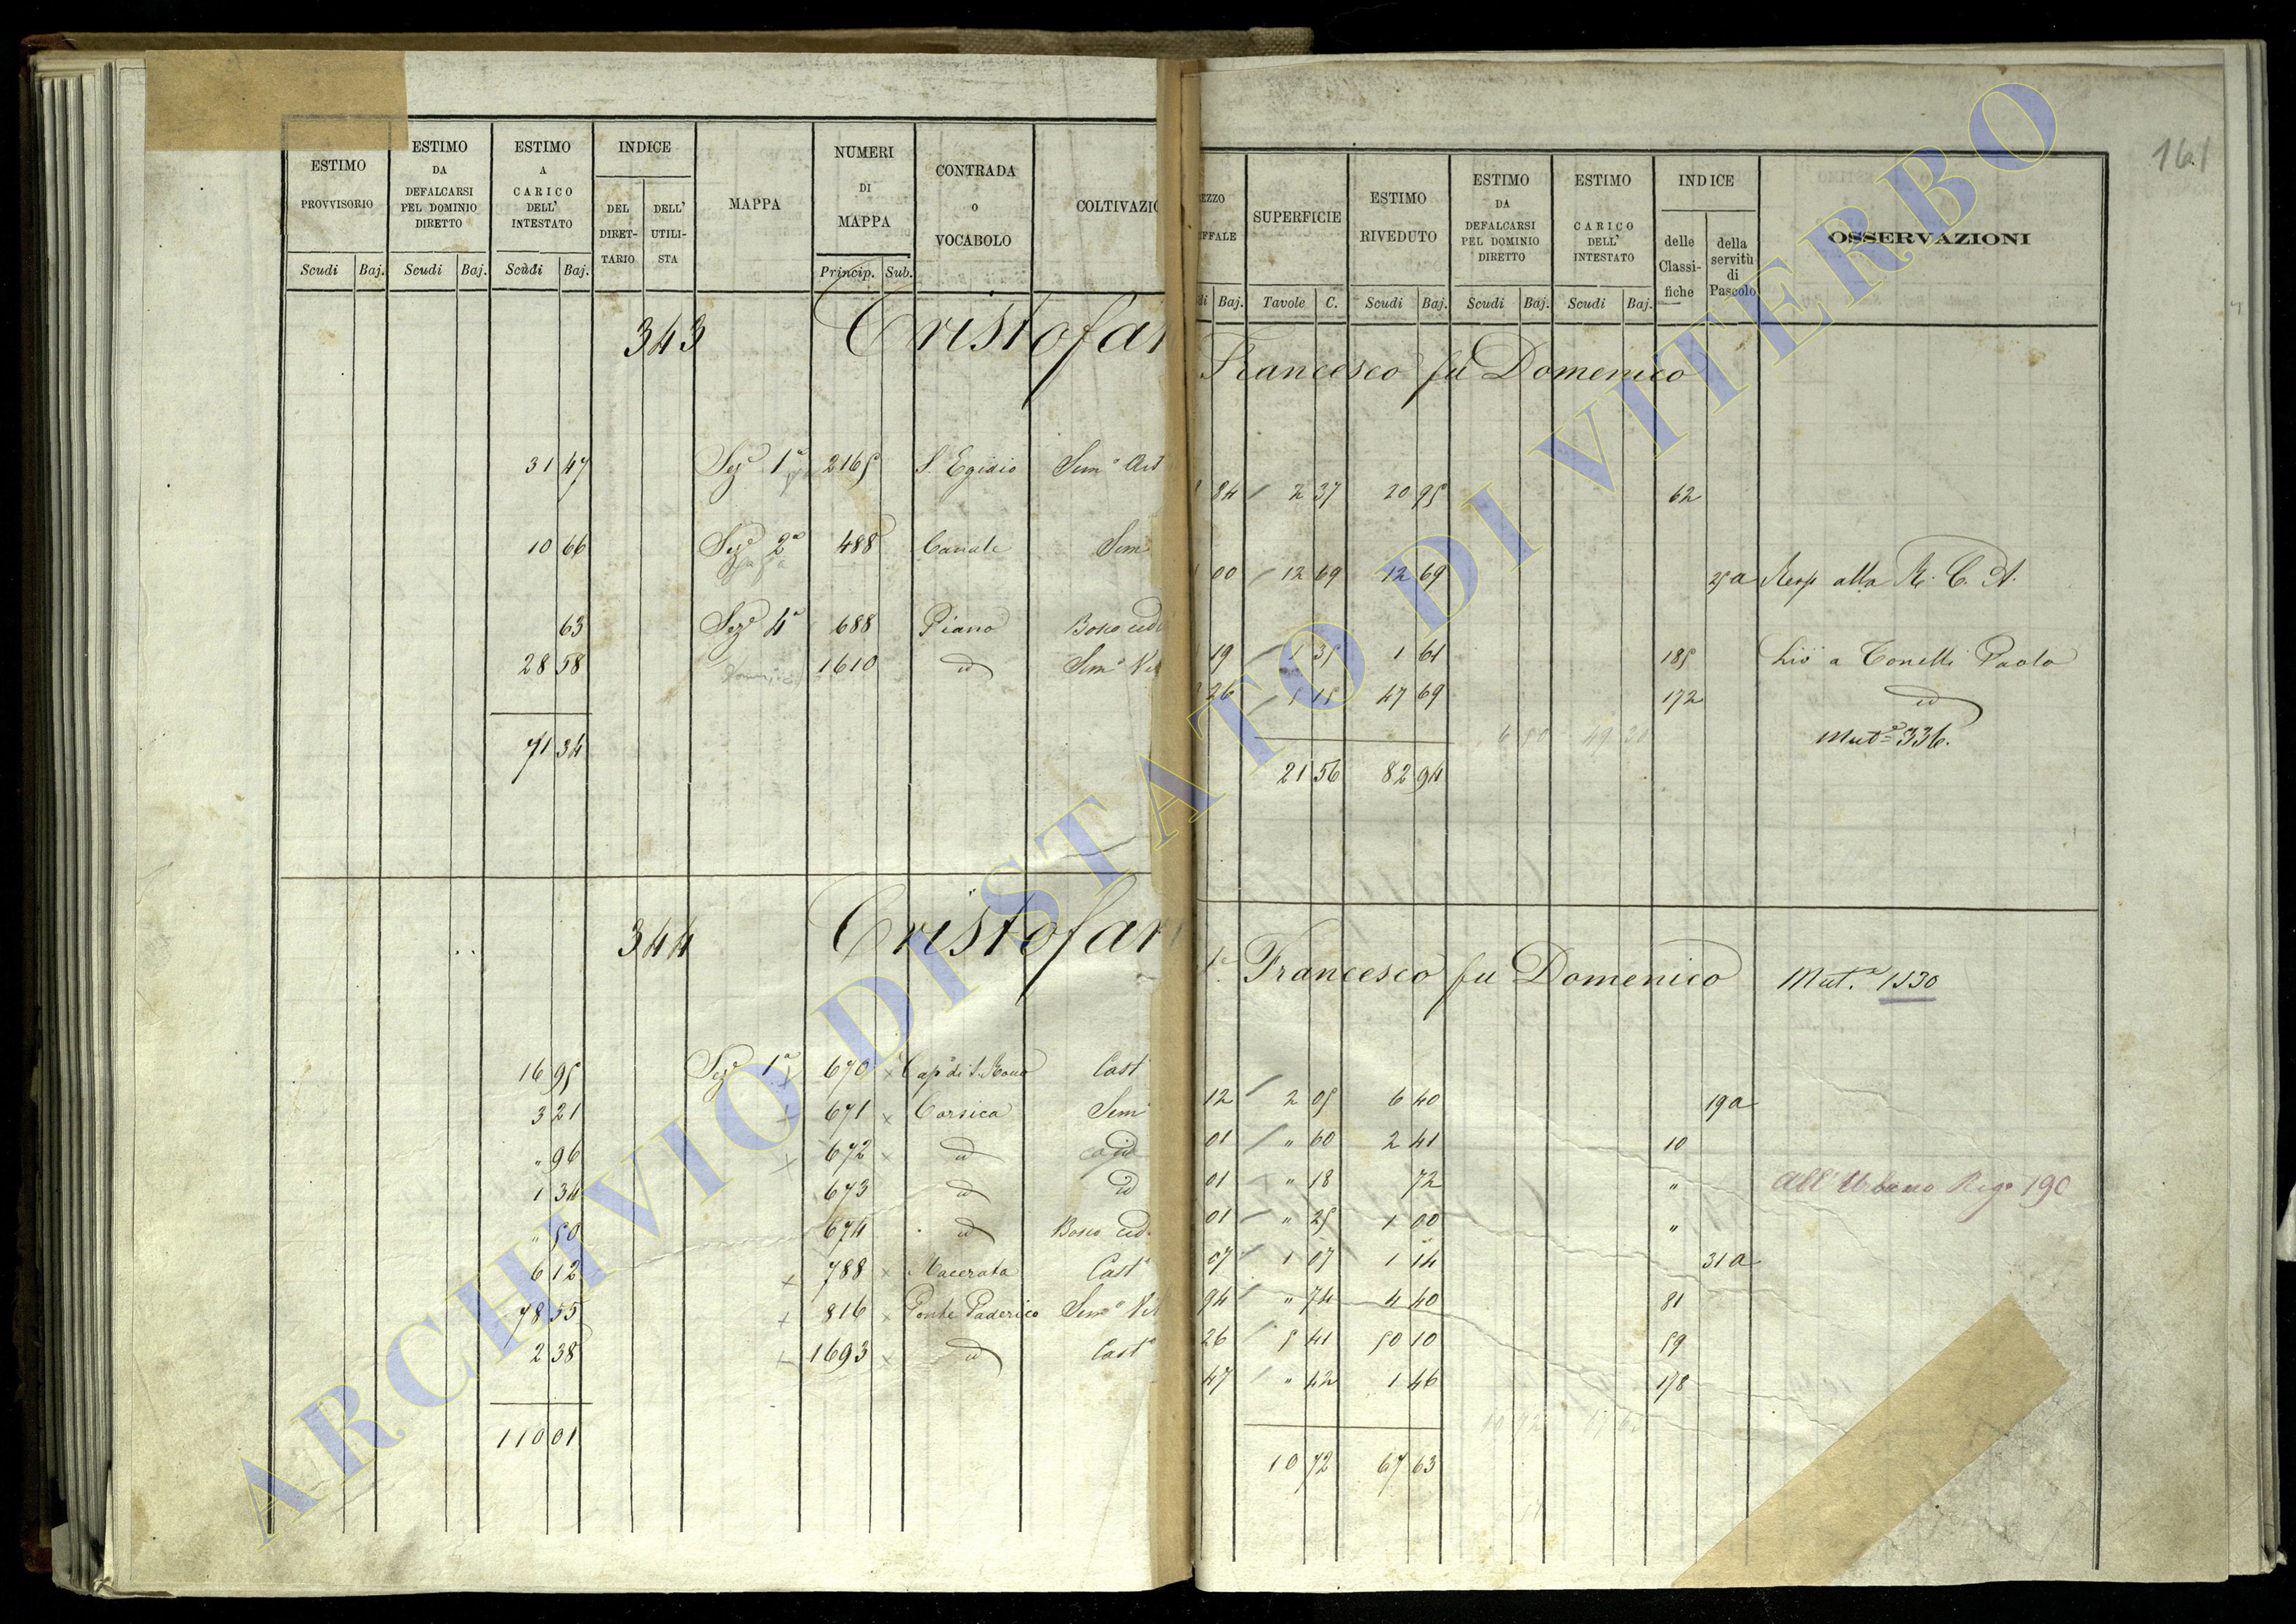 161
ESTIMO PROVVISORIO Scudi Baj.
ESTIMO DA DEFALCARSI PEL DOMINIO DIRETTO Scudi Baj.
ESTIMO A CARICO DELL' INTESTATO Scudi Baj.
INDICE DEL DIRET-TARIO DELL' UTILI-STA
MAPPA
NUMERI DI MAPPA Princip. Sub.
CONTRADA o VOCABOLO
COLTIVAZIO
EZZO IFFALE di Baj.
SUPERFICIE Tavole C.
ESTIMO RIVEDUTO Scudi Baj.
ESTIMO DA DEFALCARSI PEL DOMINIO DIRETTO Scudi Baj.
ESTIMO CARICO DELL' INTESTATO Scudi Baj.
INDICE delle Classi-fiche della servitù di Pascolo
OSSERVAZIONI
343 Cristofar Francesco fu Domenico
31 47 Sez.e 1a 2165 S. Egidio Sem.o 84 2 37 20 95 62
10 66 Sez.e 2a 488 Canale Sem 00 12 69 12 69 25a Resp alla R. C. A.
63 Sez.e 4a 688 Piano Bosco ced 19 1 35 1 61 185 Liv.o a Tonelli Paolo
28 58 1610 id Sem.o 26 5 15 47 69 172 id
Mut.e 336.
71 34 21 56 82 94
344 Cristofar Francesco fu Domenico Mut.e 1530
16 95 Sez.e 1a 670 Cast 12 2 05 6 40 19a
3 21 671 Corsica Sem 01 " 60 2 41 10
" 96 672 id id 01 " 18 72 " All'Urbano Reg.o 190
1 34 673 id id 01 " 25 1 00 "
" 50 674 id Bosco ced. 07 1 07 1 14 31a
6 12 788 Macerata Cast.o 94 " 74 4 40 81
78 55 816 Ponte Paderico Sem.o 26 5 41 50 10 59
2 38 1693 id Cast.o 47 " 42 1 46 178
110 01 10 72 67 63
ARCHIVIO DI STATO DI VITERBO